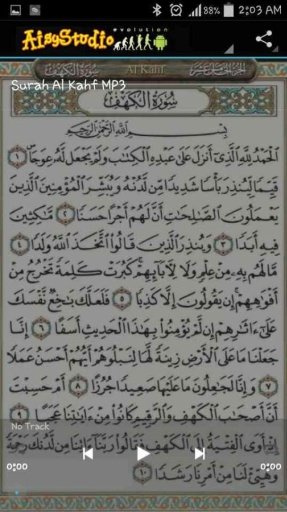 88% 2:03 AM
AisyStudio evolution
سورة الكهف Al Kahf الجزء الخامس عشر
Surah Al Kahf MP3
سورة الكهف
بسم الله الرحمن الرحيم
الحمد لله الذي أنزل على عبده الكتب ولم يجعل له عوجا ١
قيما لينذر بأسا شديدا من لدنه ويبشر المؤمنين الذين
يعملون الصلحت أن لهم أجرا حسنا ٢ مكثين
فيه أبدا ٣ وينذر الذين قالوا اتخذ الله ولدا ٤
ما لهم به من علم ولا لآبائهم كبرت كلمة تخرج من
أفواههم إن يقولون إلا كذبا ٥ فلعلك بخع نفسك
على ءاثرهم إن لم يؤمنوا بهذا الحديث أسفا ٦ إنا
جعلنا ما على الأرض زينة لها لنبلوهم أيهم أحسن عملا
٧ وإنا لجعلون ما عليها صعيدا جرزا ٨ أم حسبت
أن أصحب الكهف والرقيم كانوا من ءايتنا عجبا ٩
No Track
إذ أوى الفتية إلى الكهف فقالوا ربنا ءاتنا من لدنك رحمة
0:00 0:00
وهيئ لنا من أمرنا رشدا ١٠